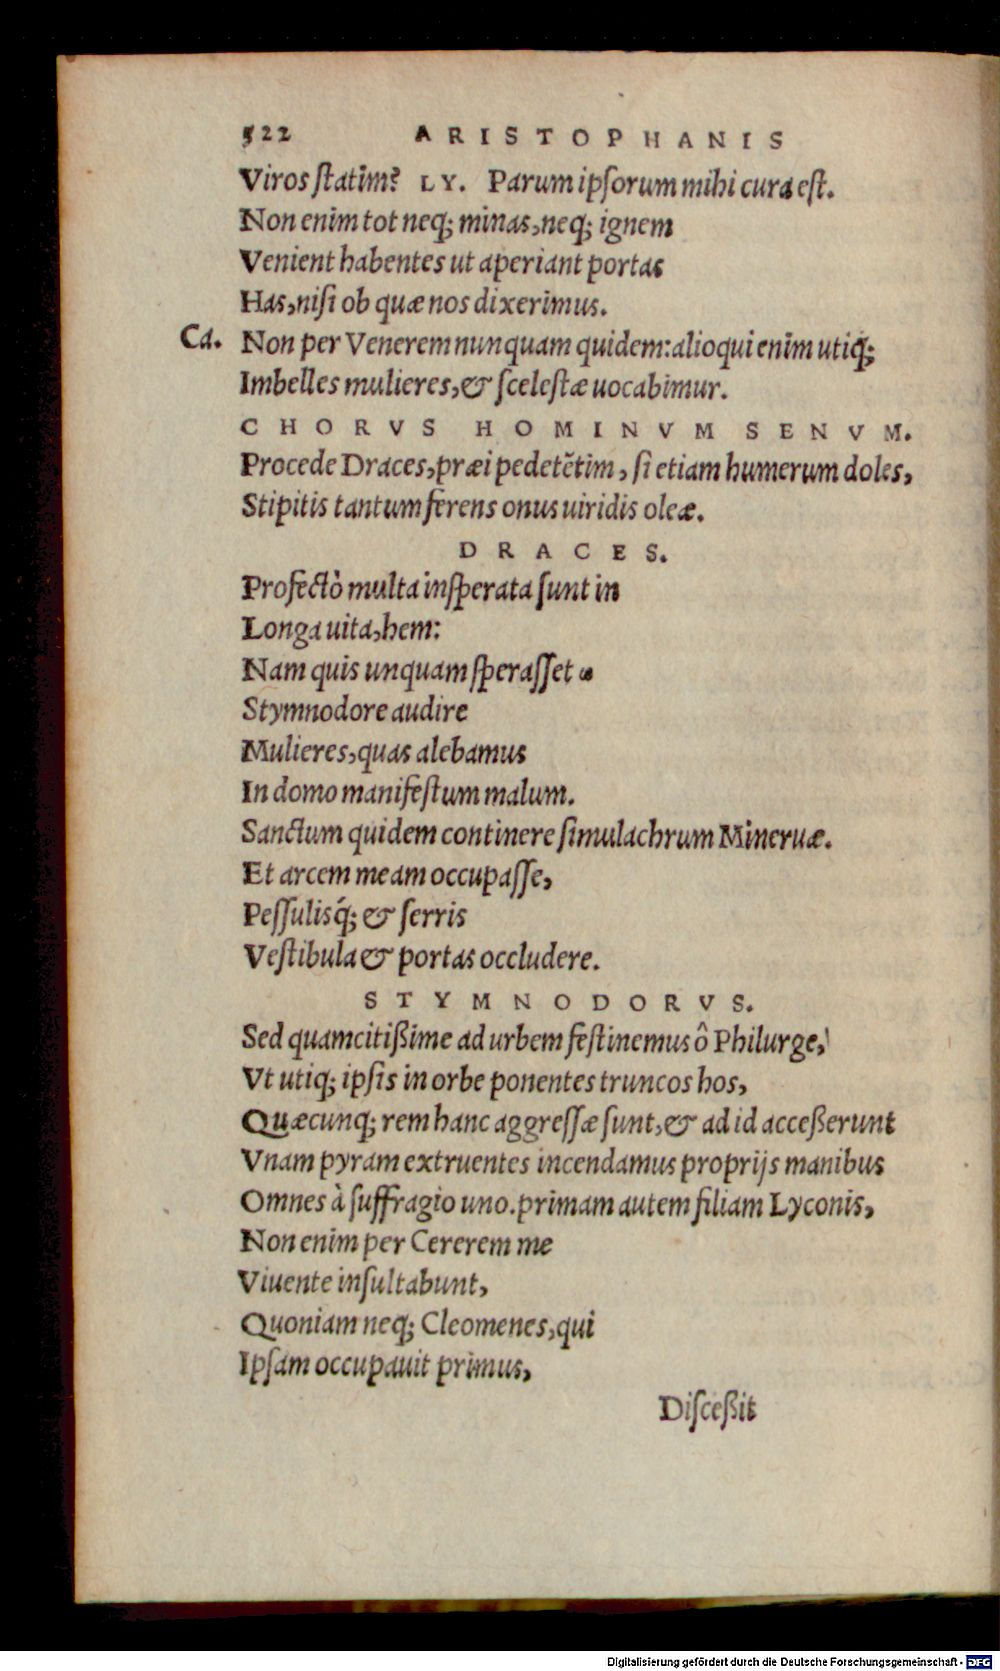 522 ARISTOPHANIS
Viros ſtatim? LY. Parum ipſorum mihi cura eſt.
Non enim tot neq; minas, neq; ignem
Venient habentes ut aperiant portas
Has, niſi ob quæ nos dixerimus.
Ca. Non per Venerem nunquam quidem: alioqui enim utiq́;
Imbelles mulieres, & ſceleſtæ uocabimur.
CHORVS HOMINVM SENVM.
Procede Draces, præi pedetẽtim, ſi etiam humerum doles,
Stipitis tantum ferens onus uiridis oleæ.
DRACES.
Profectò multa inſperata ſunt in
Longa uita, hem:
Nam quis unquam ſperaſſet ω
Stymnodore audire
Mulieres, quas alebamus
In domo manifeſtum malum.
Sanctum quidem continere ſimulachrum Mineruæ.
Et arcem meam occupaſſe,
Peſſulisq́; & ſerris
Veſtibula & portas occludere.
STYMNODORVS.
Sed quamcitißime ad urbem feſtinemus ô Philurge,
Vt utiq; ipſis in orbe ponentes truncos hos,
Quæcunq; rem hanc aggreſſæ ſunt, & ad id acceßerunt
Vnam pyram extruentes incendamus proprijs manibus
Omnes à ſuffragio uno. primam autem filiam Lyconis,
Non enim per Cererem me
Viuente inſultabunt,
Quoniam neq; Cleomenes, qui
Ipſam occupauit primus,
Diſceßit
Digitalisierung gefördert durch die Deutsche Forschungsgemeinschaft - DFG